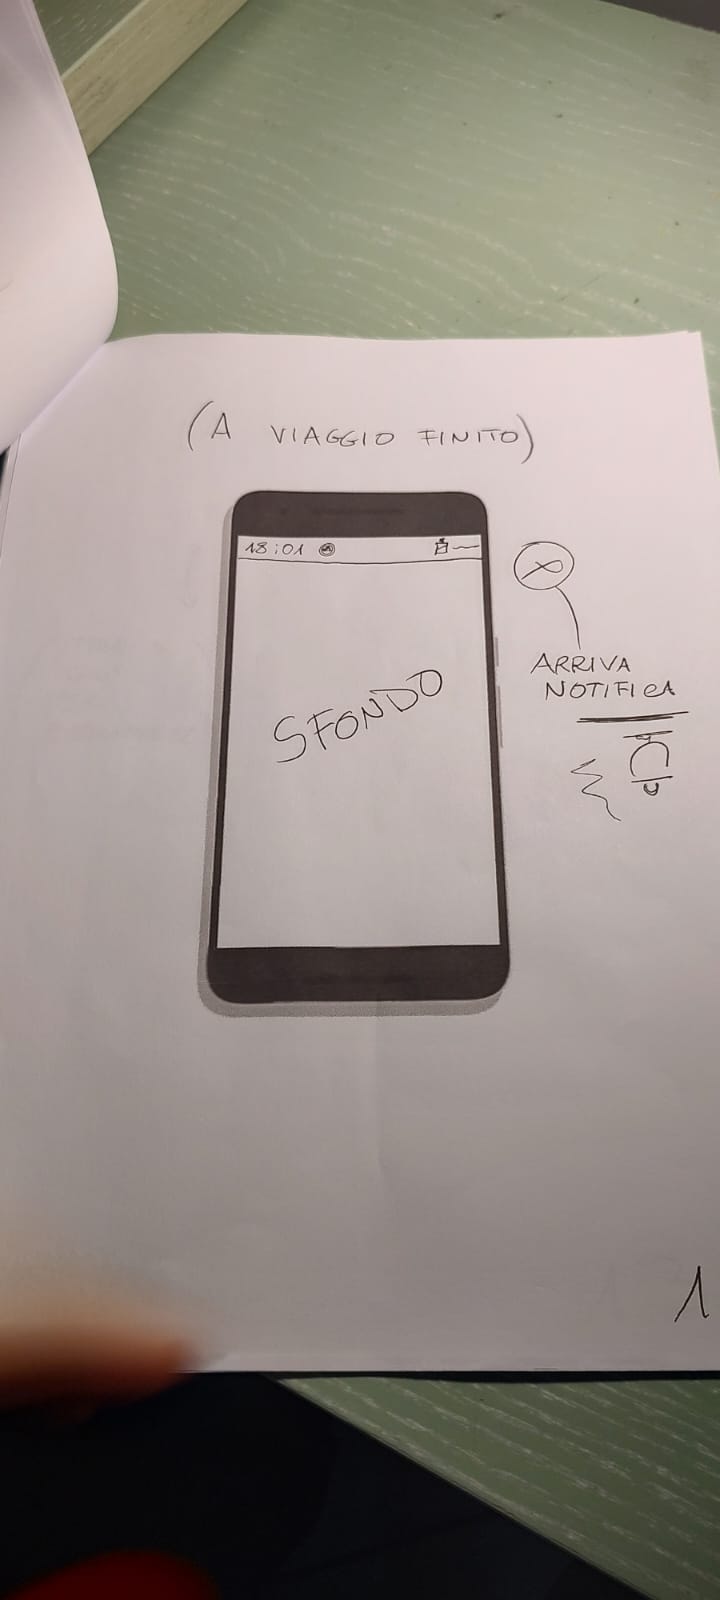 (A VIAGGIO FINITO)
18:01
SFONDO
ARRIVA
NOTIFICA
1